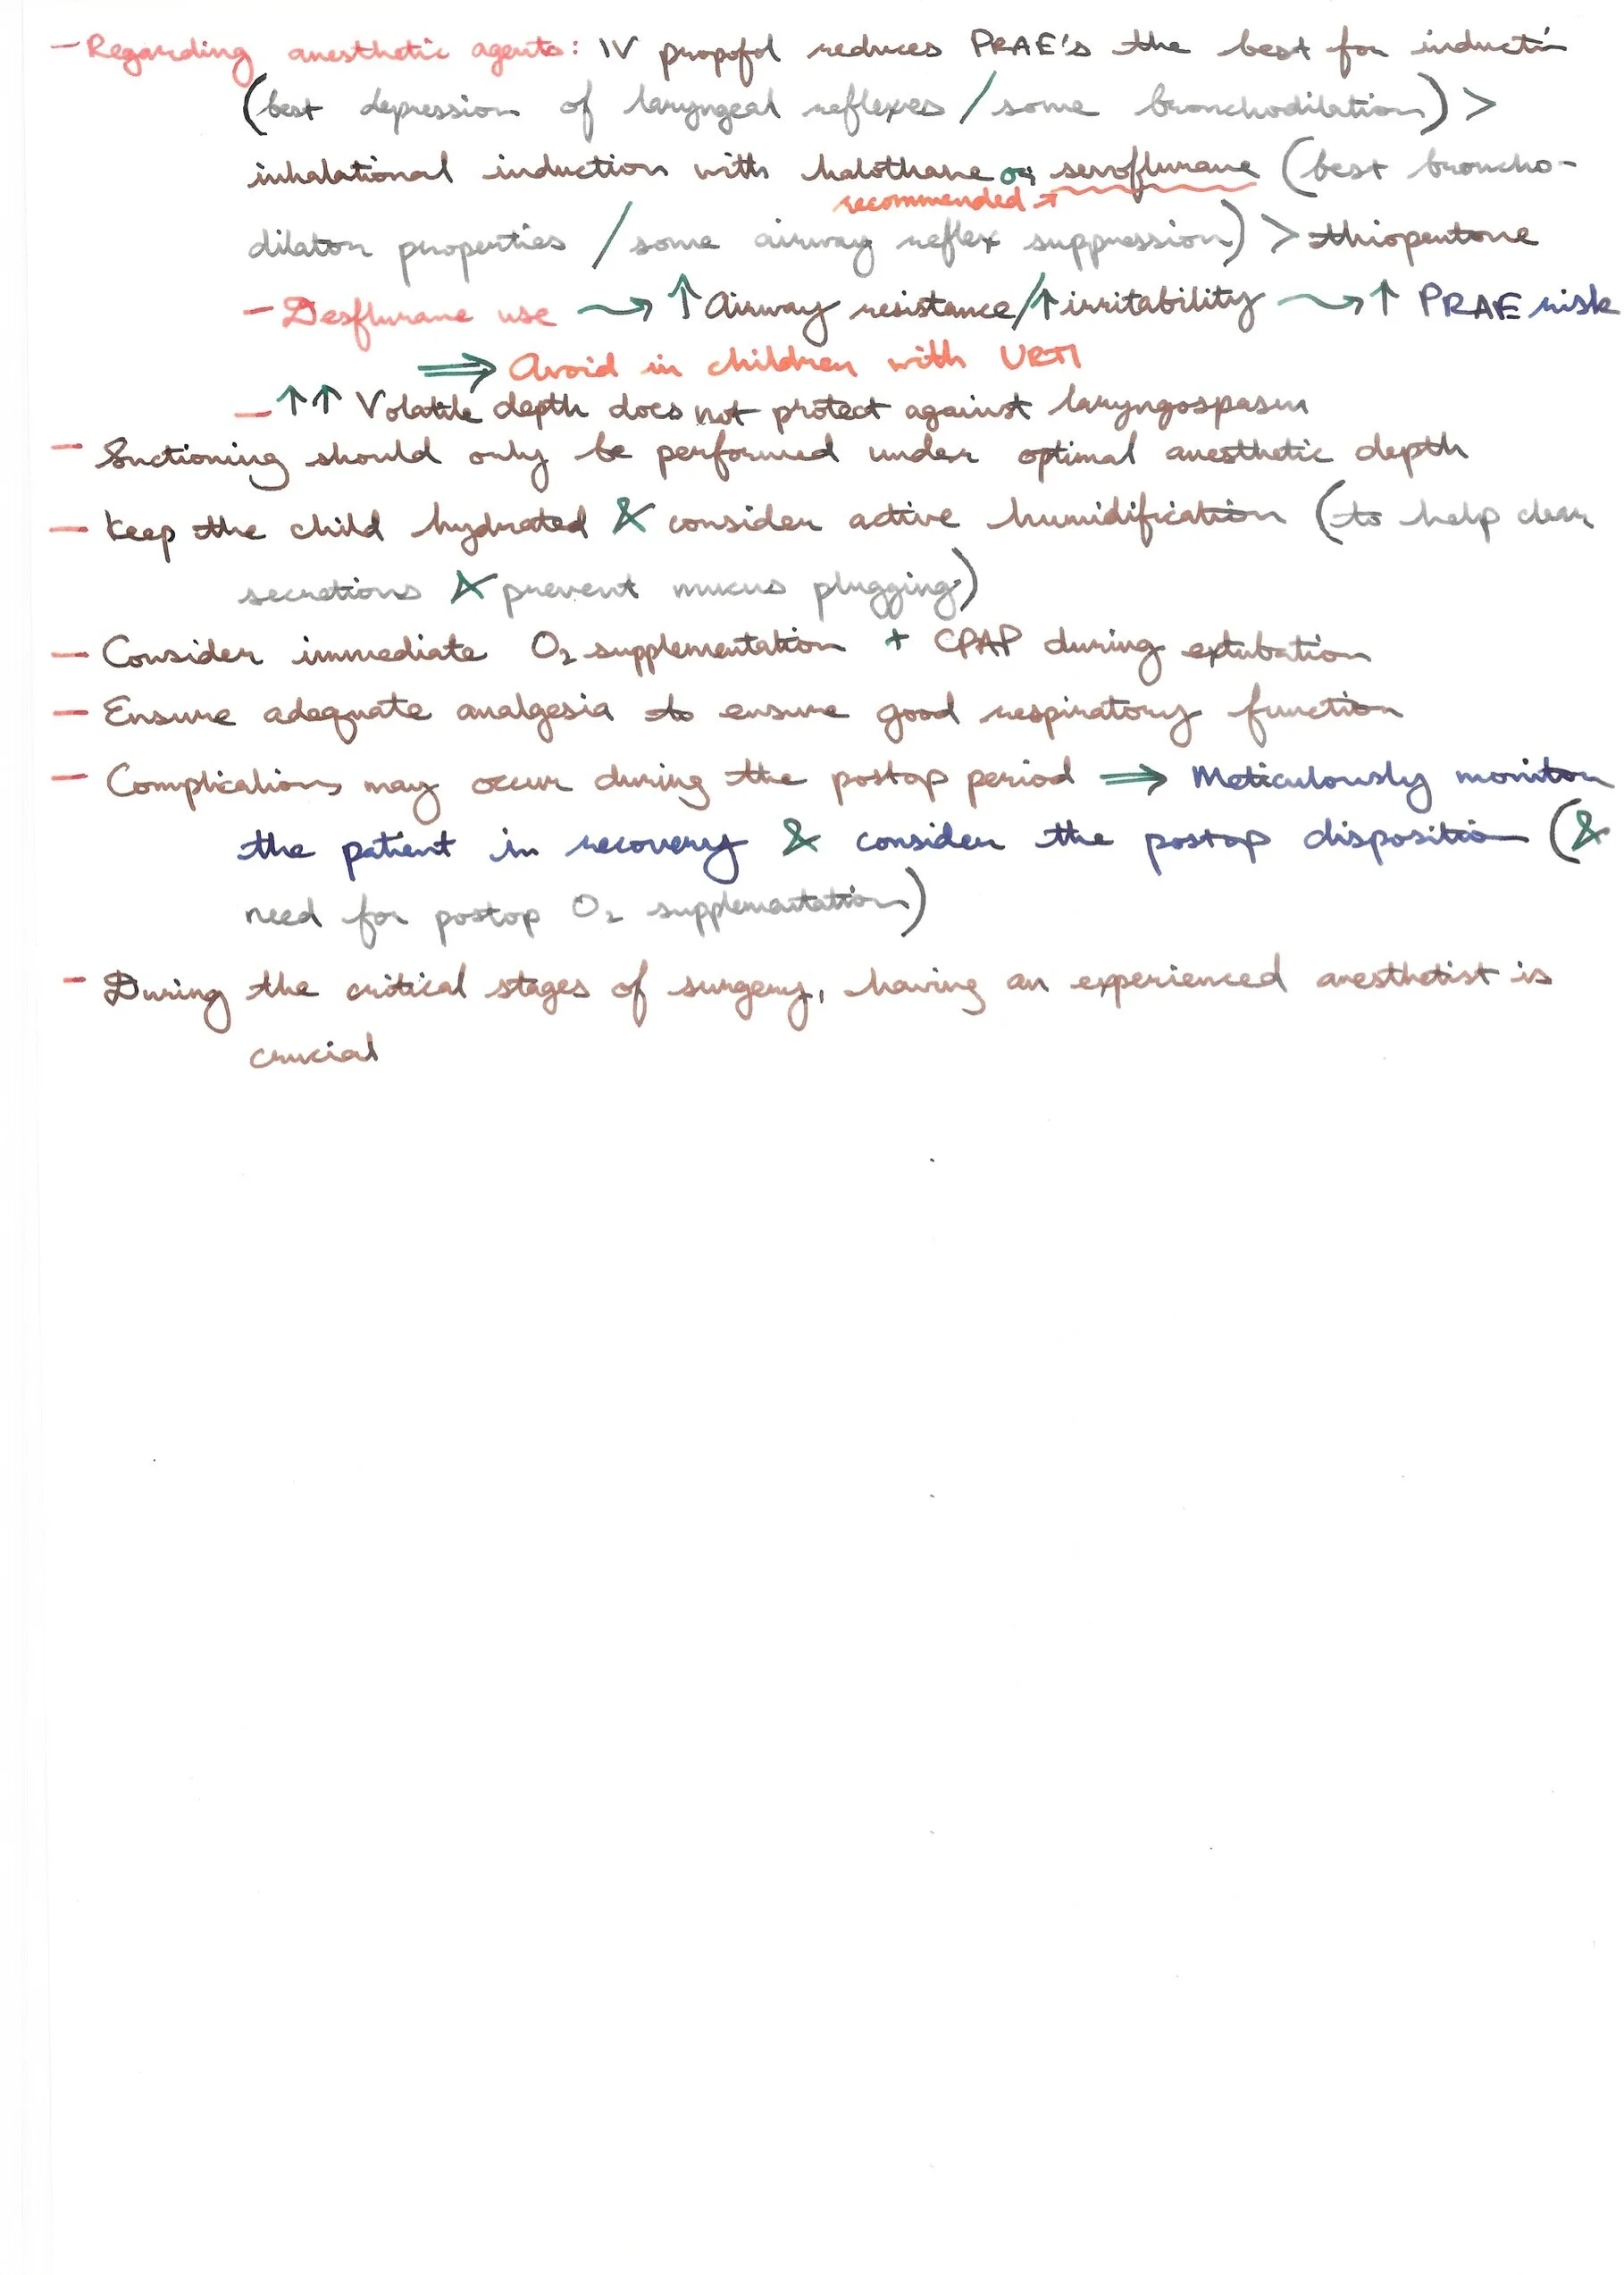 - Regarding anesthetic agents: IV propofol reduces PRAE's the best for inducti
(best depression of laryngeal reflexes / some bronchodilation) >
inhalational induction with halothane or sevoflurane (best broncho-
recommended ↗
dilator properties / some airway reflex suppression) > thiopentone
- Desflurane use → ↑ Airway resistance/↑ irritability → ↑ PRAE risk
⇒ Avoid in children with URTI
- ↑↑ Volatile depth does not protect against laryngospasm
- Suctioning should only be performed under optimal anesthetic depth
- Keep the child hydrated & consider active humidification (to help clear
secretions & prevent mucus plugging)
- Consider immediate O₂ supplementation + CPAP during extubation
- Ensure adequate analgesia to ensure good respiratory function
- Complications may occur during the postop period ⇒ Meticulously monitor
the patient in recovery & consider the postop disposition (&
need for postop O₂ supplementation)
- During the critical stages of surgery, having an experienced anesthetist is
crucial